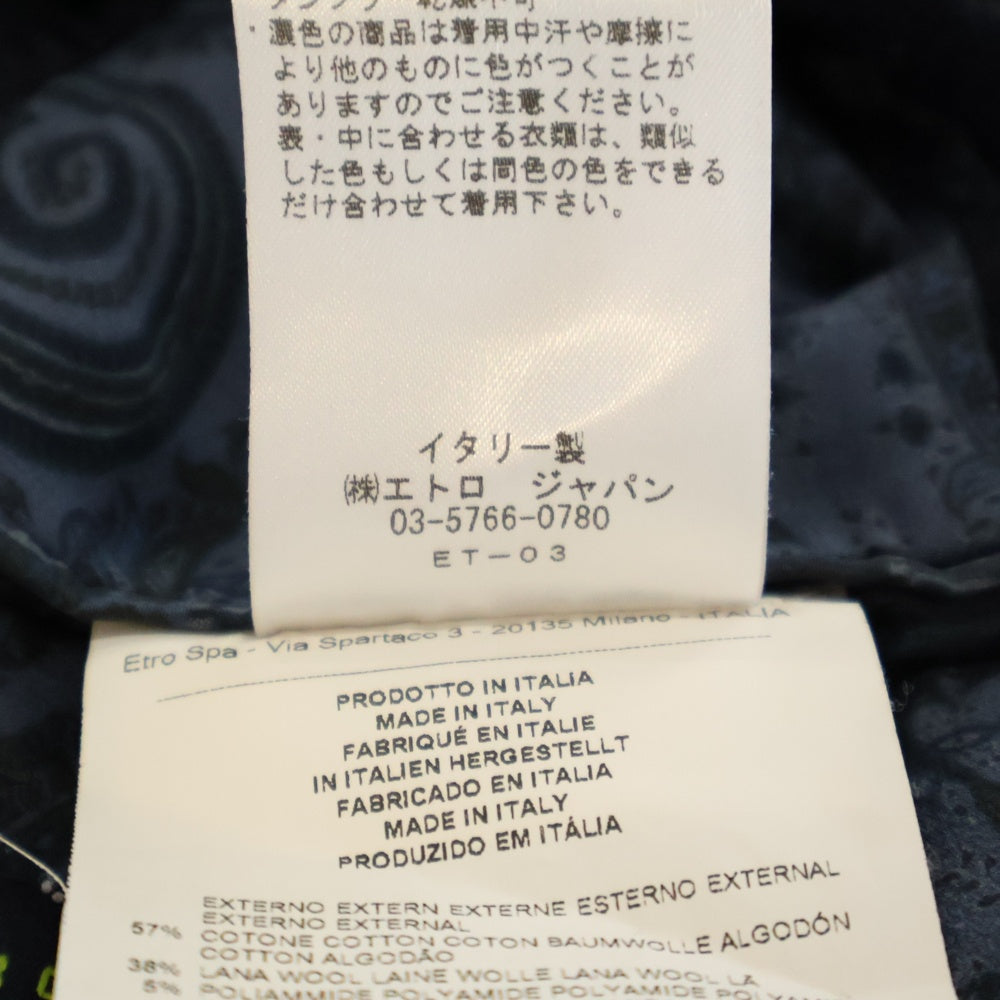 タンブラー乾燥不可
・濃色の商品は着用中汗や摩擦に
より他のものに色がつくことが
ありますのでご注意ください。
表・中に合わせる衣類は、類似
した色もしくは同色の色をできる
だけ合わせて着用下さい。
イタリー製
㈱エトロ ジャパン
03-5766-0780
ET-03
Etro Spa - Via Spartaco 3 - 20135 Milano - ITALIA
PRODOTTO IN ITALIA
MADE IN ITALY
FABRIQUÉ EN ITALIE
IN ITALIEN HERGESTELLT
FABRICADO EN ITALIA
MADE IN ITALY
PRODUZIDO EM ITÁLIA
EXTERNO EXTERN EXTERNE ESTERNO EXTERNAL
EXTERNO EXTERNAL
57% COTONE COTTON COTON BAUMWOLLE ALGODÓN
COTTON ALGODÃO
38% LANA WOOL LAINE WOLLE LANA WOOL LÃ
5% POLIAMMIDE POLYAMIDE POLYAMIDE POLYAMID